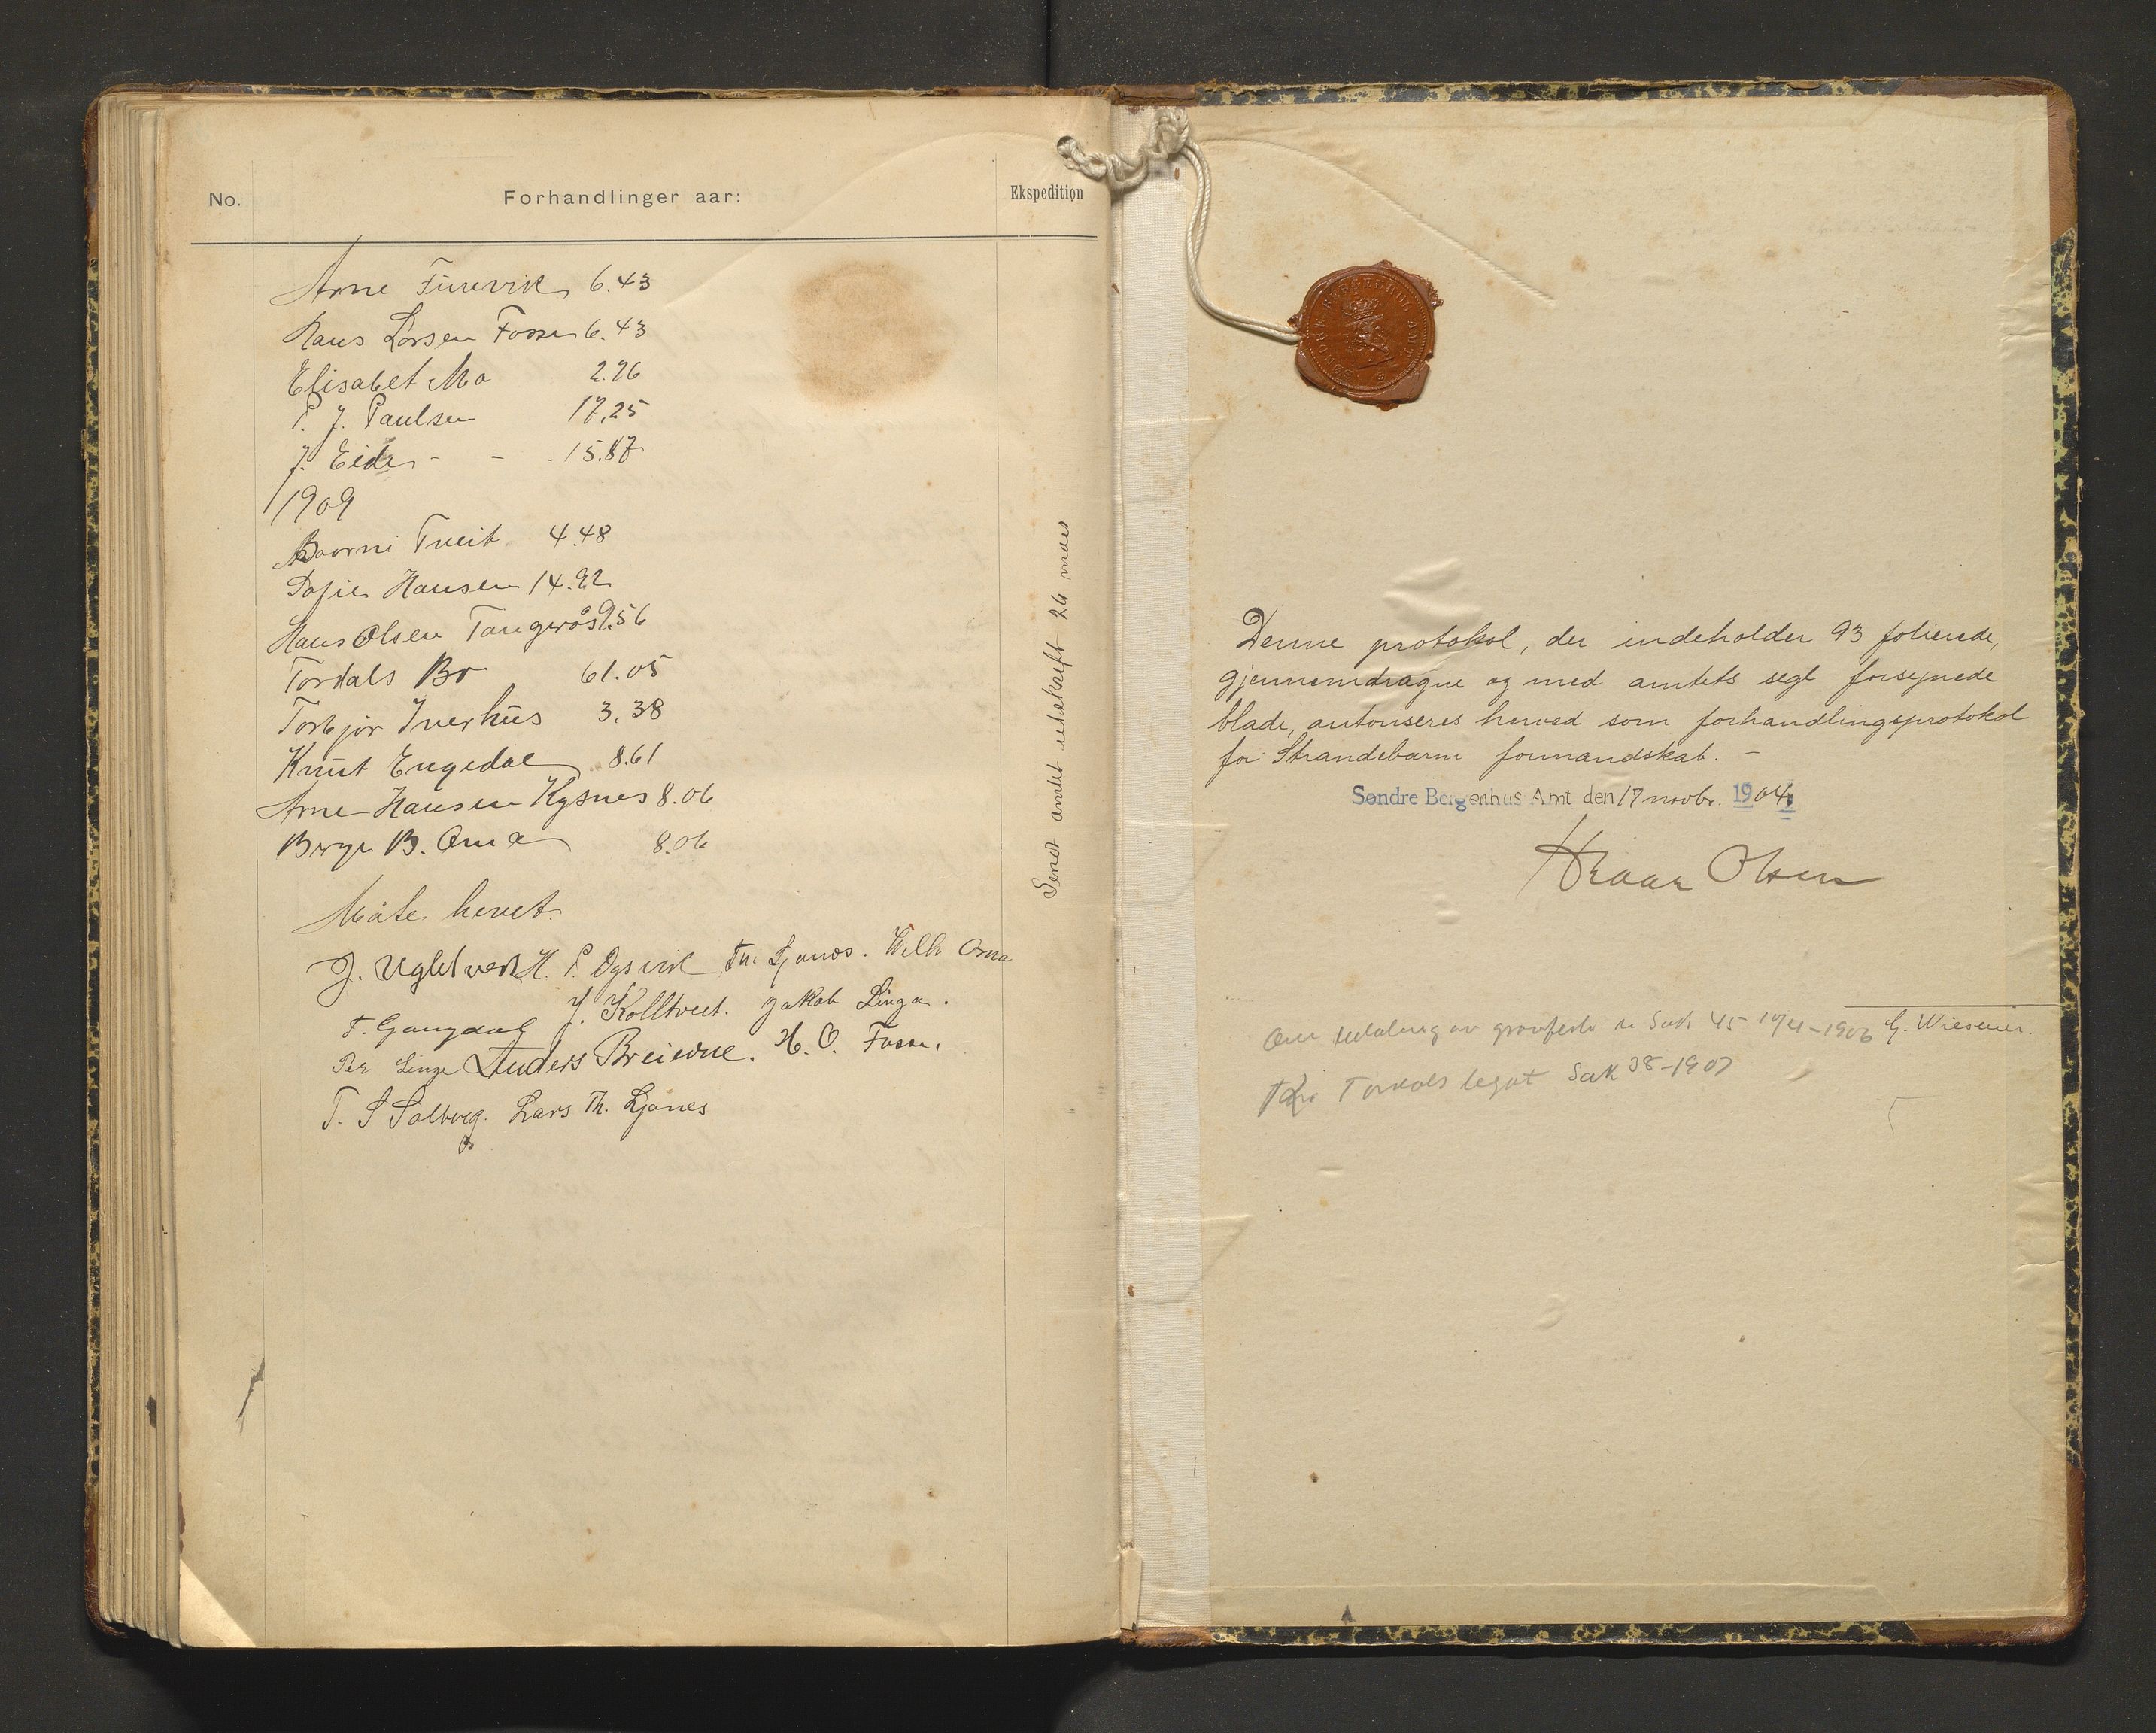 No.
Forhandlinger aar:
Ekspedition
Arne Furevik 6.43
Hans Larsen Fosse 6.43
Elisabet Mo 2.76
P. J. Paulsen 17,25
J. Eide - - 15.87
1909
Tveit 4.48
Sofie Hansen 14.92
Hans Olsen Tangerås 9.56
Tordals Bo 61.05
Torbjør Iverhus 3,38
Knut Engedal 8.61
Arne Hansen Kysnes 8.06
Børge B. Oma 8.06
Måte hevet.
J. Ugletveit H. P. Øgsvik Th. Ljones. Wilh Oma
T. Gangdal J. Kolltveit. Jakob Linga.
Per Linge Anders Breievne. H. O. Fosse.
T. S Solberg. Lars Th. Ljones
Sendt amtet utskrift 24 mars
SØNDRE BERGENHUS AMT
Denne protokol, der indeholder 93 folierede,
gjennemdragne og med amtets segl forsynede
blade, autoriseres herved som forhandlingsprotokol
for Strandebarm formandskab. -
Søndre Bergenhus Amt, den 17 novbr. 1904.
Hroar Olsen
G. Wiesener.
Om utdeling av sak 45 17/4-1906
Tordals legat Sak 38-1907